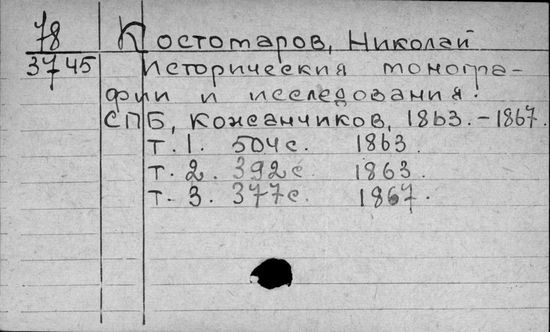 78
3745
Костомаров, Николай
Исторические моногра-
фии и исследования.
СПБ, Кожанчиков, 1863.-1867.
т. 1. 504с. 1863.
т. 2. 392с. 1863.
т. 3. 377с. 1867.